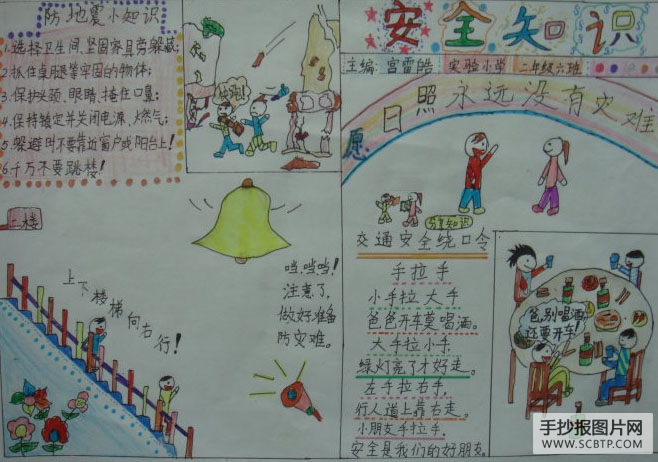 防地震小知识
1.选择卫生间、坚固家具旁躲藏;
2.抓住桌腿等牢固的物体;
3.保护头颈、眼睛、掩住口鼻;
4.保持镇定并关闭电源、燃气;
5.躲避时不要靠近窗户或阳台上!
6.千万不要跳楼!
安全知识
主编:宫雷皓 实验小学 二年级六班
愿日照永远没有灾难
二楼
上下楼梯向右行!
当.当当!
注意了,
做好准备
防灾难。
安全知识
交通安全绕口令
手拉手
小手拉大手
爸爸开车莫喝酒。
大手拉小手
绿灯亮了才好走。
左手拉右手,
行人道上靠右走。
小朋友手拉手,
安全是我们的好朋友。
爸,别喝酒,
还要开车!
手抄报图片网
WWW.SCBTP.COM